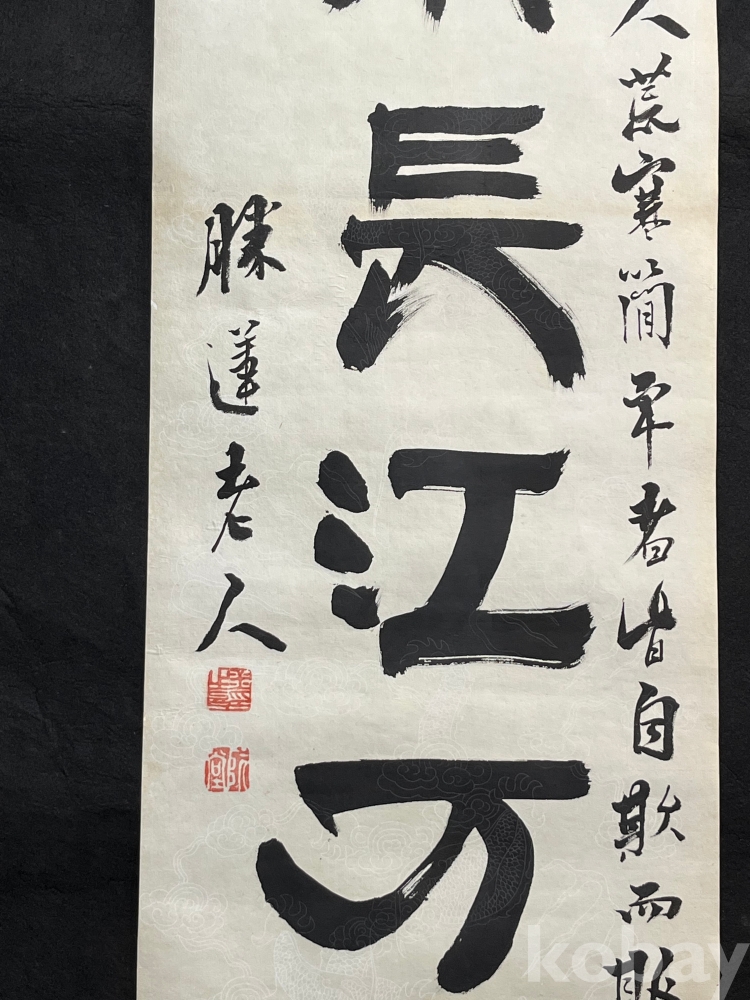 人荒寒簡者皆自欺而
長江万
勝蓮老人
阮堂
kobay